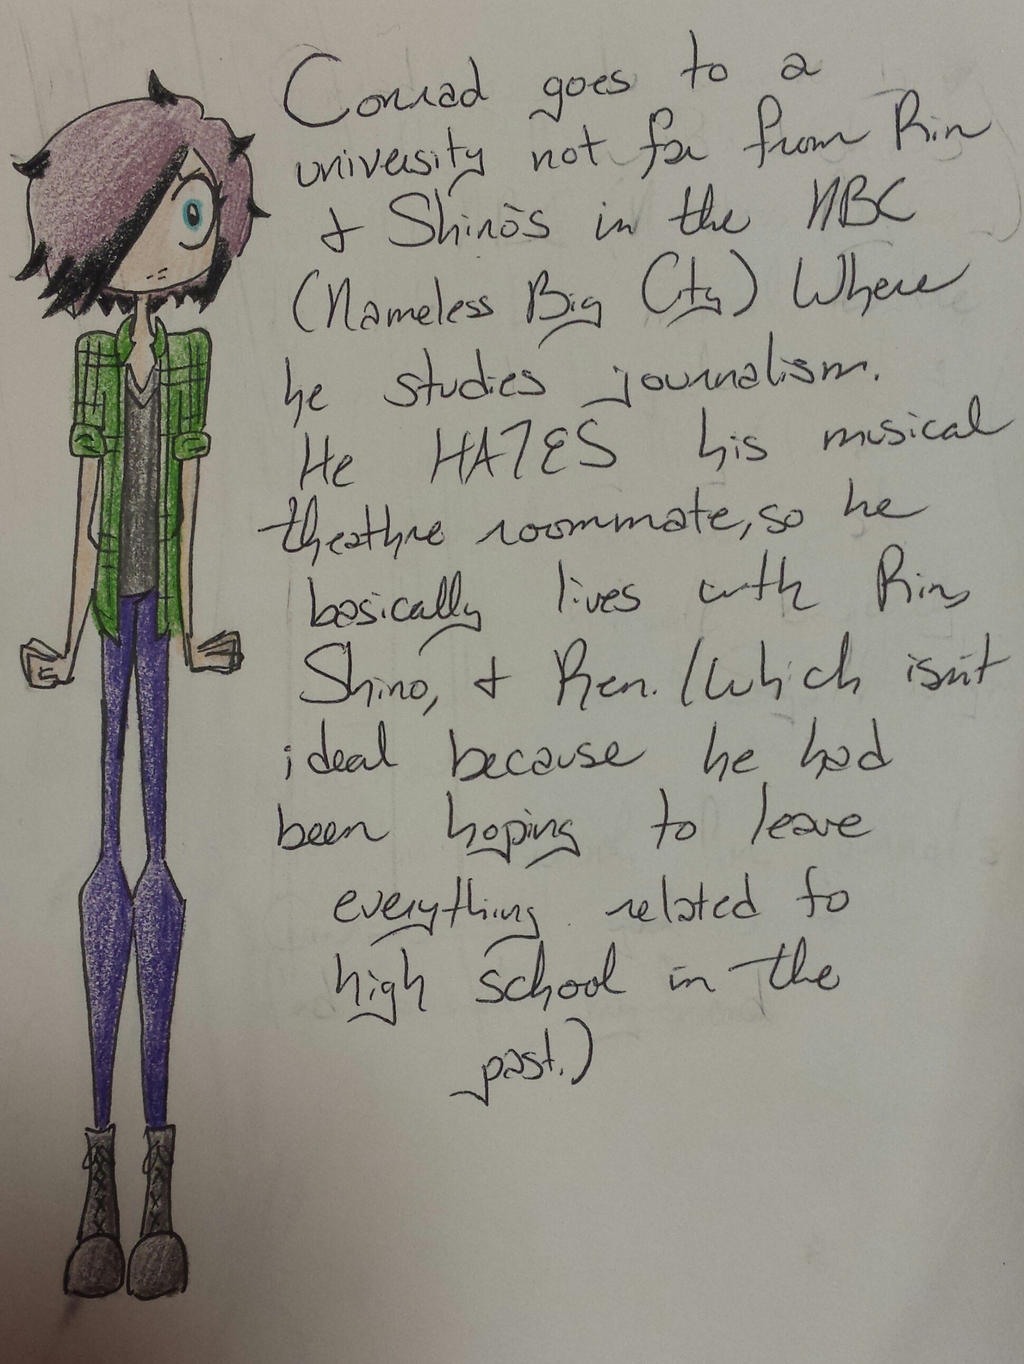 Conrad goes to a
university not far from Rin
& Shino's in the NBC
(Nameless Big City) Where
he studies journalism.
He HATES his musical
theathre roommate, so he
basically lives with Rin,
Shino, & Ren. (Which isn't
ideal because he had
been hoping to leave
everything related to
high school in the
past.)